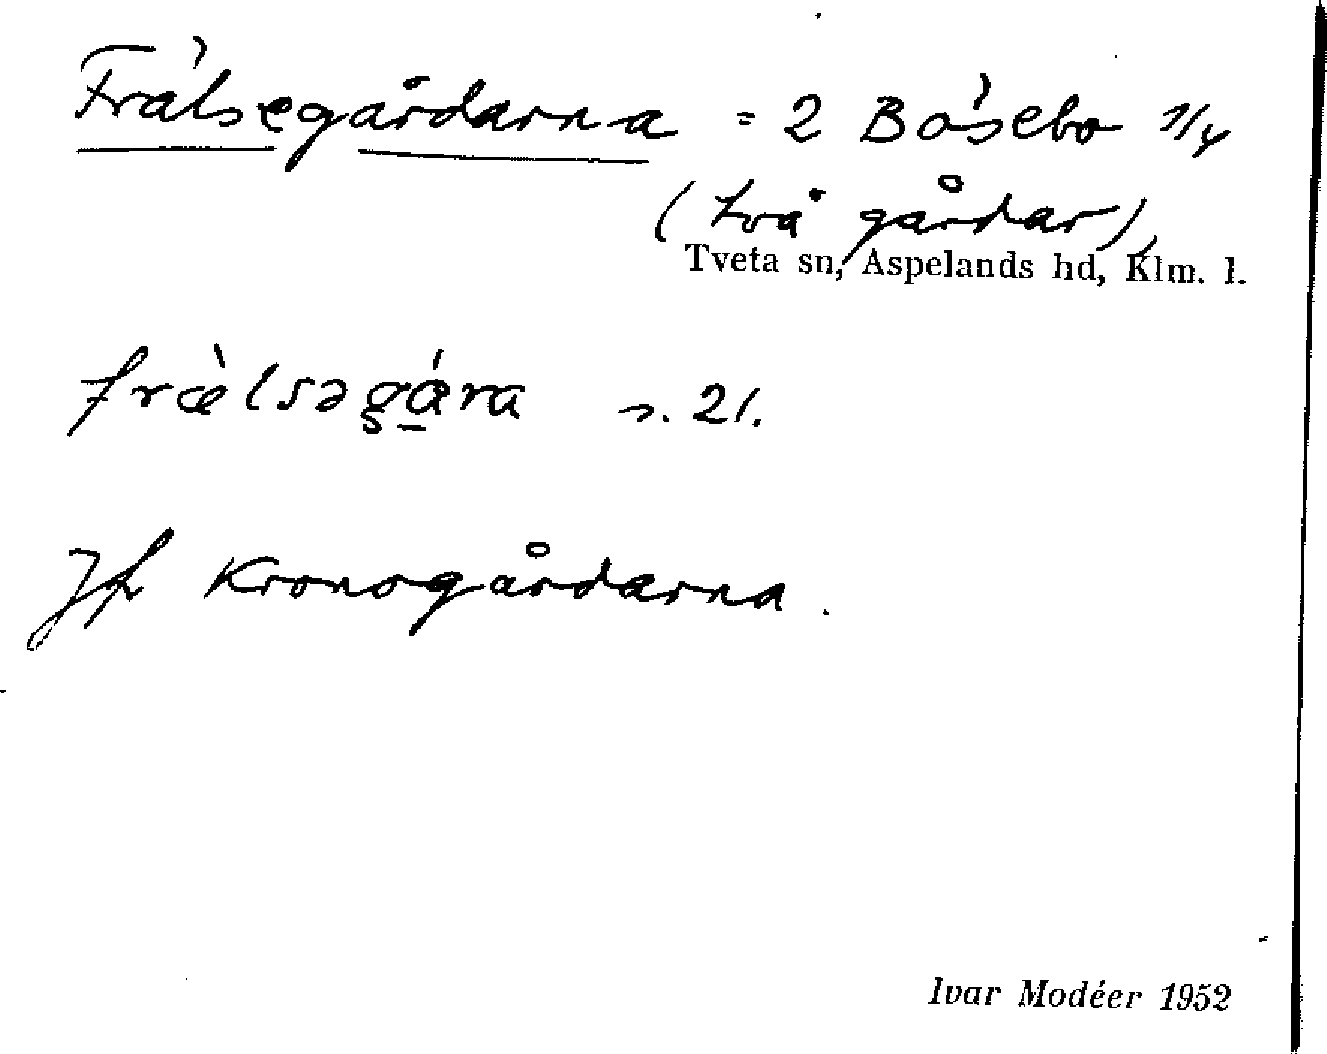 Frälsegårdarna = 2 Båsebo 1/4
(två gårdar)
Tveta sn, Aspelands hd, Klm. l.
fræ̀lsəgára s. 21.
Jfr Kronogårdarna.
Ivar Modéer 1952